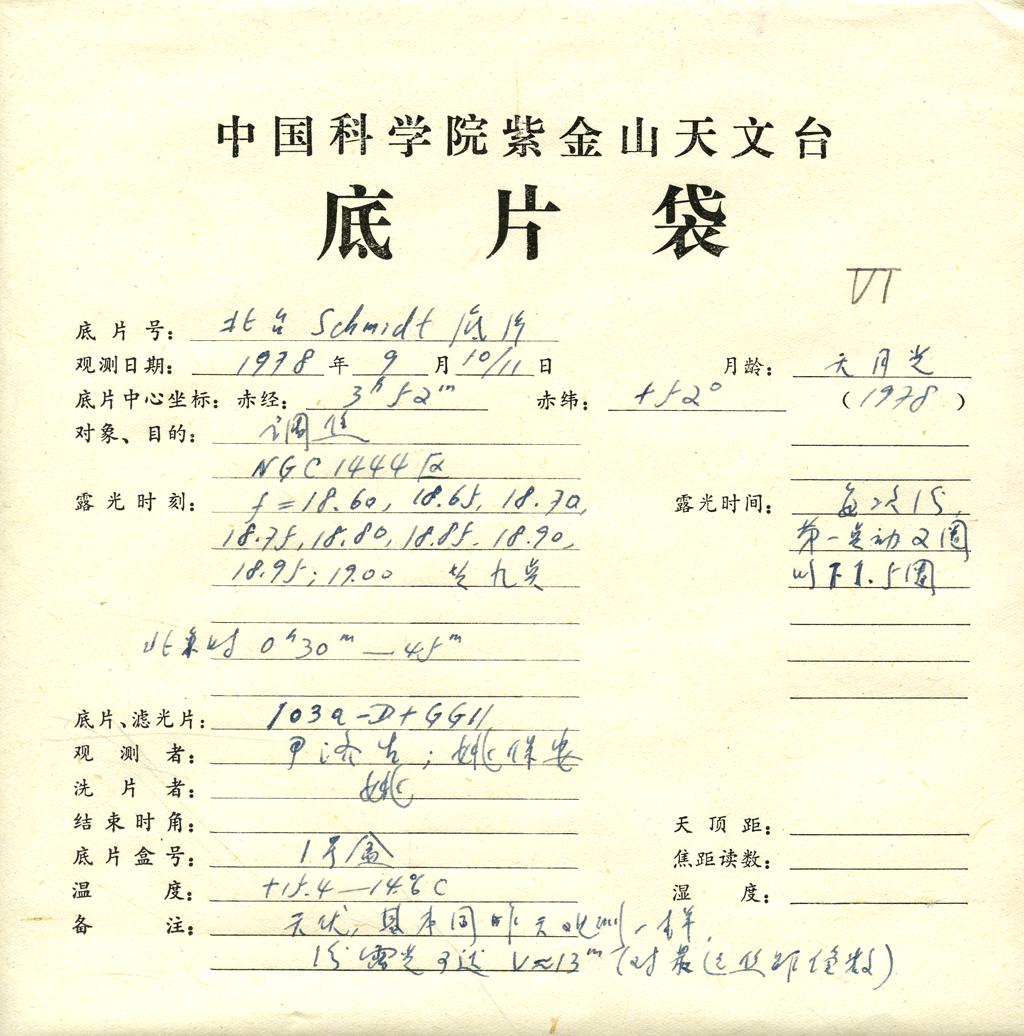 中国科学院紫金山天文台
底片袋
VI
底片号: 北台 Schmidt 底片
观测日期: 1978 年 9 月 10/11 日 月龄: 无月光
底片中心坐标: 赤经: 3h 52m 赤纬: +52° (1978)
对象、目的: 调焦
NGC 1444 区
露光时刻: f=18.60, 18.65, 18.70, 露光时间: 每次15,
18.75, 18.80, 18.85, 18.90, 第一星动2圈
18.95; 19.00 共九星 以下1.5圈
北京时 0h30m—45m
底片、滤光片: 103a-D+GG11
观测者: 姚保安
洗片者: 姚
结束时角: 天顶距:
底片盒号: 1号盒 焦距读数:
温度: +15.4—14.6°C 湿度:
备注: 基本同昨天观测一样
露光可达 V≈13m (对最